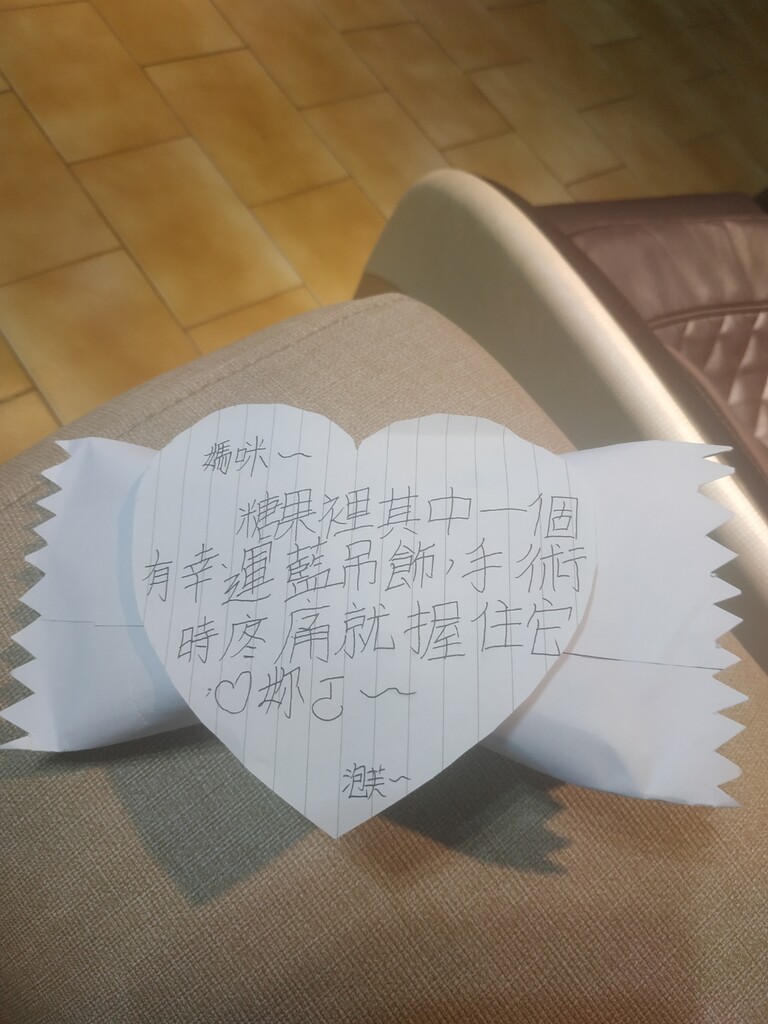 媽咪～
糖果裡其中一個
有幸運藍吊飾，手術
時疼痛就握住它
♡妳
泡芙～